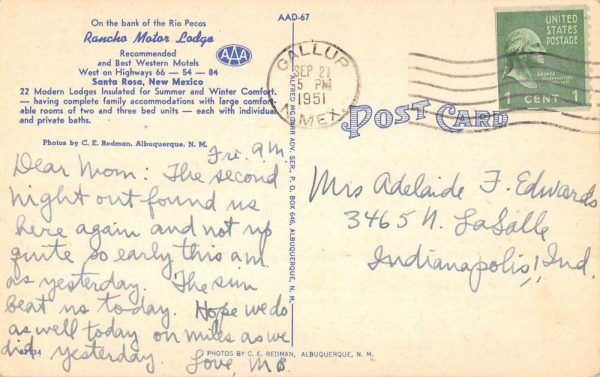 On the bank of the Rio Pecos
Rancho Motor Lodge
Recommended
and Best Western Motels
West on Highways 66 — 54 — 84
Santa Rosa, New Mexico
22 Modern Lodges Insulated for Summer and Winter Comfort.
— having complete family accommodations with large comfort-
able rooms of two and three bed units — each with individual
and private baths.
Photos by C. E. Redman, Albuquerque, N. M.
AAA
AAD-67
GALLUP
SEP 21
5 PM
1951
N. MEX.
UNITED
STATES
POSTAGE
GEORGE WASHINGTON
1 CENT 1
POST CARD
Fri. A.M.
Dear Mom: The second
night out found us
here again and not up
quite so early this a.m.
as yesterday. The sun
beat us today. Hope we do
as well today on miles as we
did yesterday.
Love, MB.
Mrs Adelaide F. Edwards
3465 N. LaSalle
Indianapolis, Ind.
PHOTOS BY C. E. REDMAN, ALBUQUERQUE, N. M.